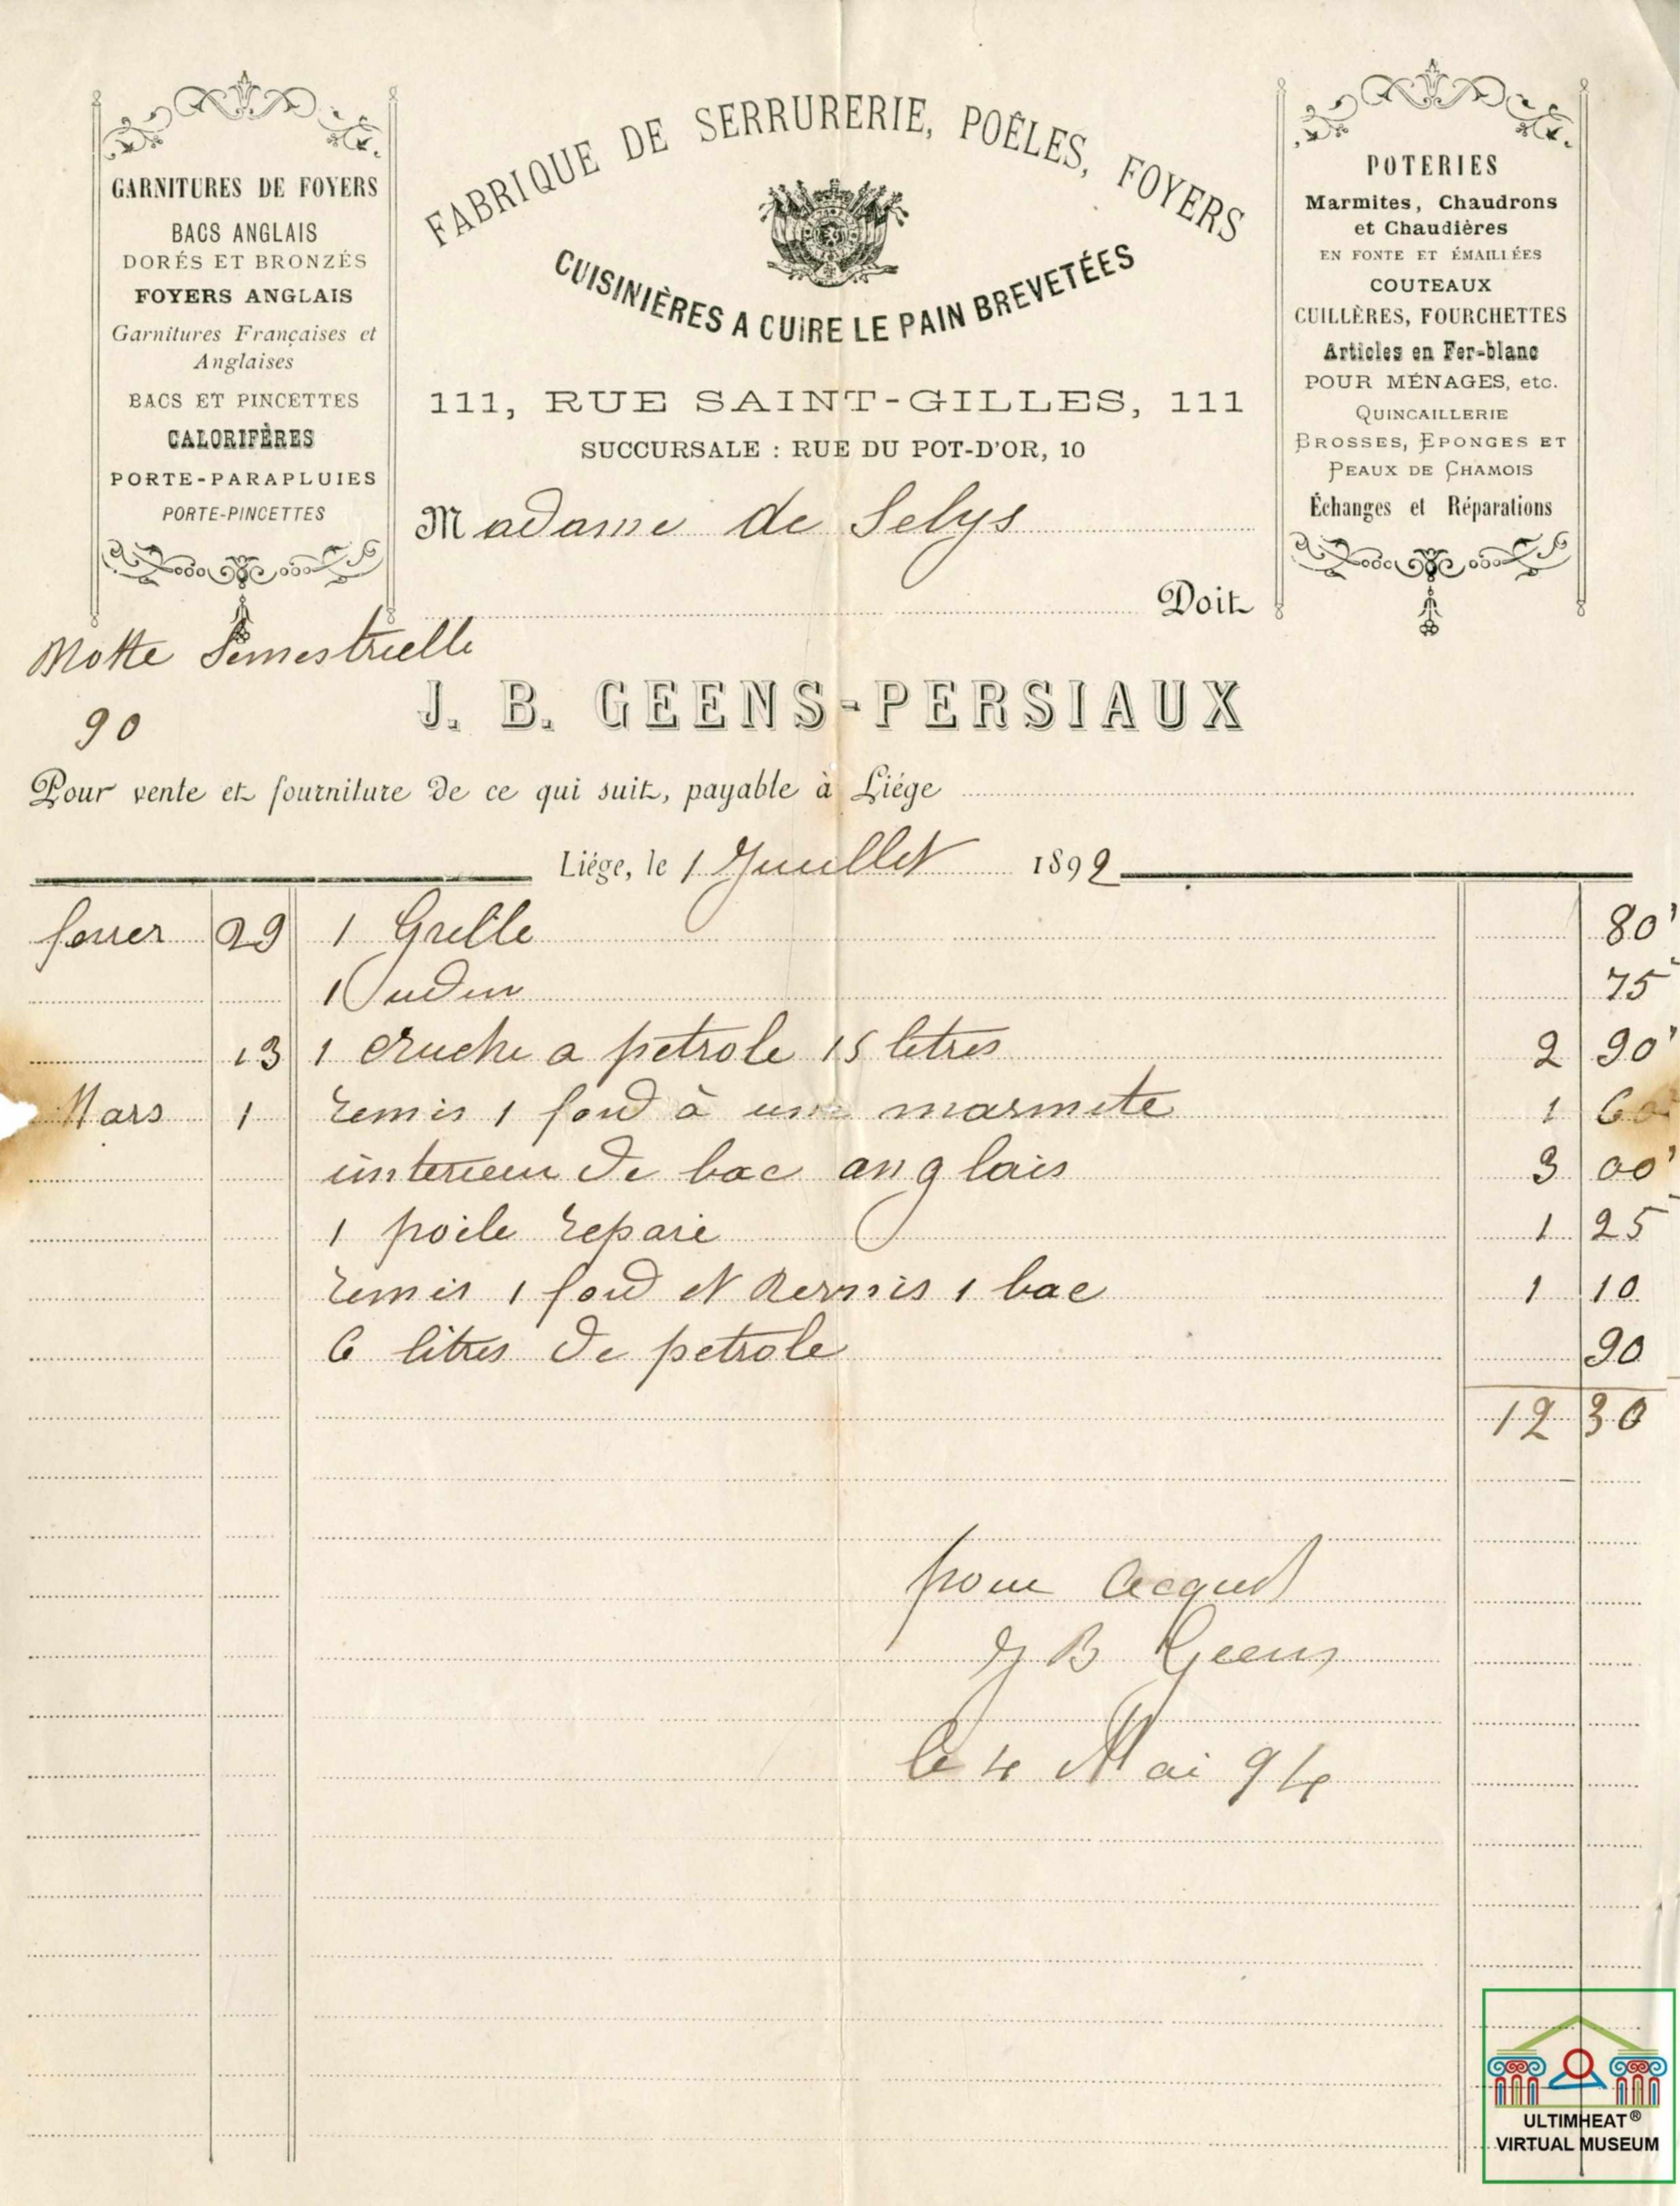 GARNITURES DE FOYERS
BACS ANGLAIS
DORÉS ET BRONZÉS
FOYERS ANGLAIS
Garnitures Françaises et
Anglaises
BACS ET PINCETTES
CALORIFÈRES
PORTE-PARAPLUIES
PORTE-PINCETTES
FABRIQUE DE SERRURERIE, POÊLES, FOYERS
CUISINIÈRES A CUIRE LE PAIN BREVETÉES
111, RUE SAINT-GILLES, 111
SUCCURSALE : RUE DU POT-D'OR, 10
POTERIES
Marmites, Chaudrons
et Chaudières
EN FONTE ET ÉMAILLÉES
COUTEAUX
CUILLÈRES, FOURCHETTES
Articles en Fer-blanc
POUR MÉNAGES, etc.
QUINCAILLERIE
BROSSES, EPONGES ET
PEAUX DE CHAMOIS
Échanges et Réparations
Madame de Selys
Doit
Motte Semestrielle
90
J. B. GEENS-PERSIAUX
Pour vente et fourniture de ce qui suit, payable à Liége
Liége, le 1 Juillet 1892
29 1 Grille 80
1 75
13 1 cruche a petrole 15 litres 2 90
Mars 1 remis 1 fond à une marmite 1 60
interieur de bac anglais 3 00
1 poile repare 1 25
remis 1 fond et vernis 1 bac 1 10
6 litres de petrole 90
12 30
pour acquit
J B Geens
le 4 Mai 94
ULTIMHEAT®
VIRTUAL MUSEUM